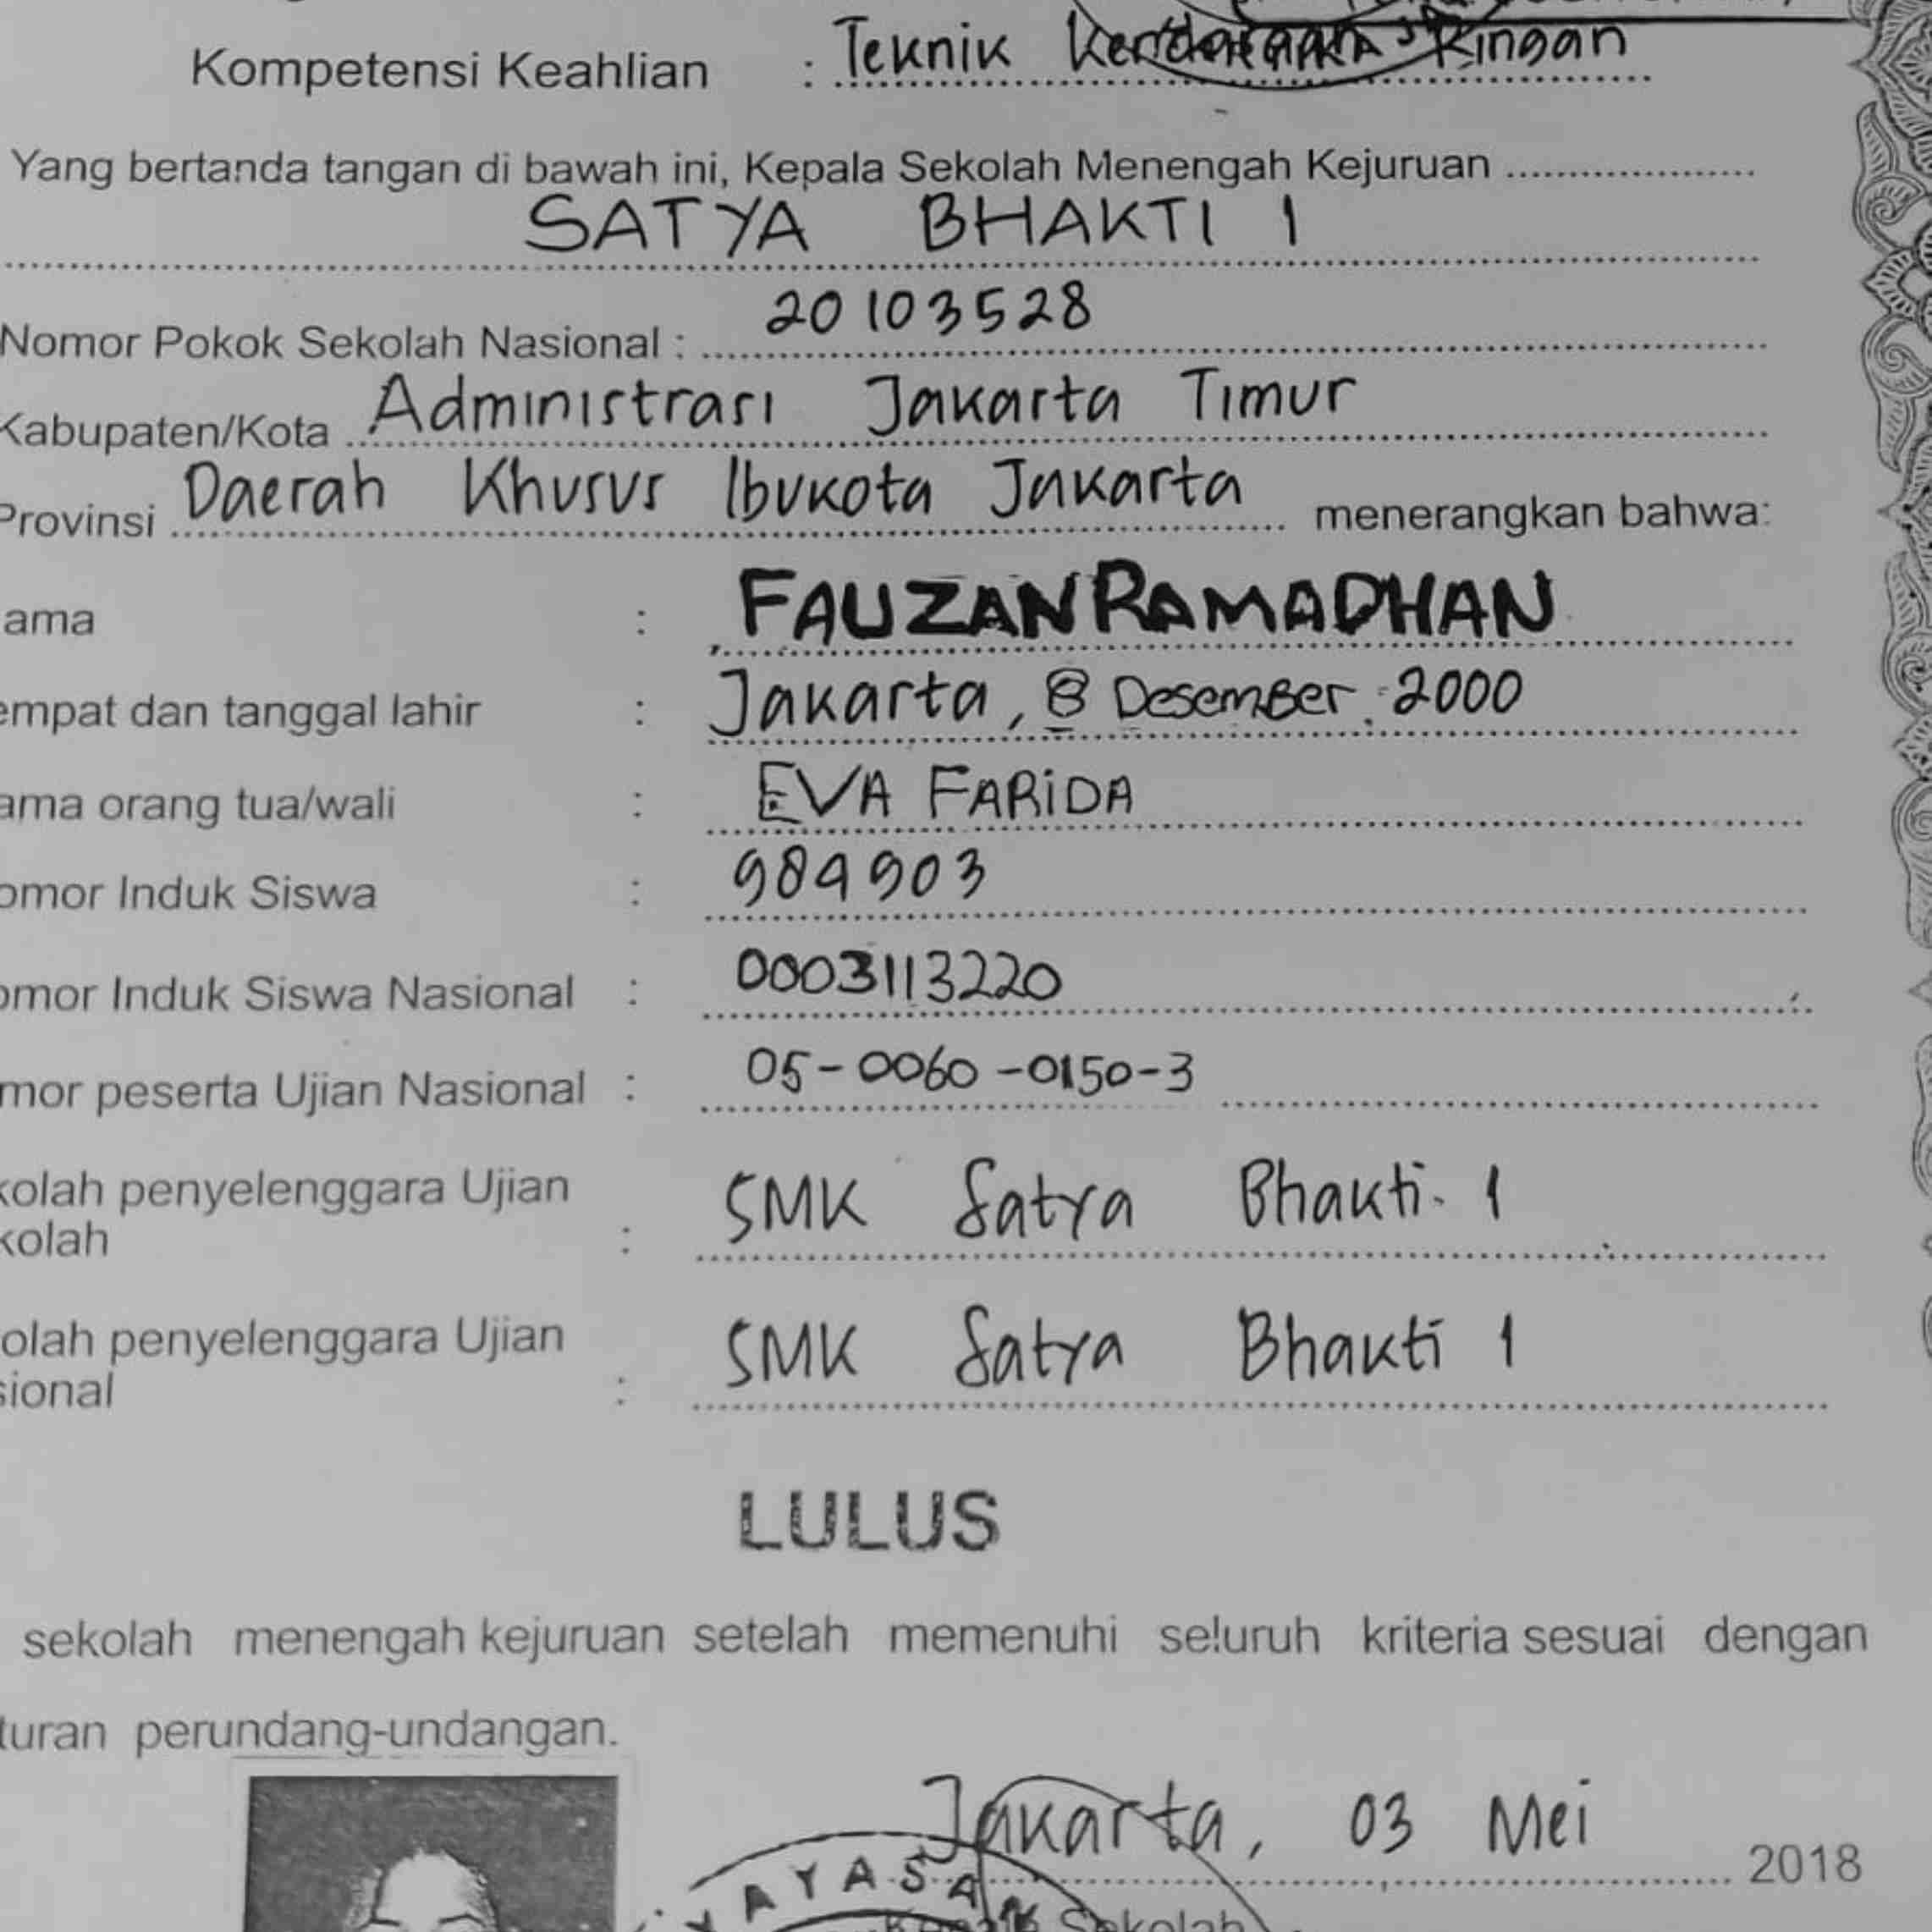 Kompetensi Keahlian : Teknik Kendaraan Ringan
Yang bertanda tangan di bawah ini, Kepala Sekolah Menengah Kejuruan ....................
SATYA BHAKTI 1
Nomor Pokok Sekolah Nasional : 20103528
Kabupaten/Kota Administrasi Jakarta Timur
Provinsi Daerah Khusus Ibukota Jakarta menerangkan bahwa:
ama : FAUZAN RAMADHAN
empat dan tanggal lahir : Jakarta, 8 Desember 2000
ama orang tua/wali : EVA FARiDA
omor Induk Siswa : 984903
omor Induk Siswa Nasional : 0003113220
mor peserta Ujian Nasional : 05-0060-0150-3
kolah penyelenggara Ujian
kolah : SMK Satya Bhakti 1
olah penyelenggara Ujian
sional : SMK Satya Bhakti 1
LULUS
sekolah menengah kejuruan setelah memenuhi seluruh kriteria sesuai dengan
turan perundang-undangan.
Jakarta, 03 Mei 2018
YAYASAN
Kepala Sekolah